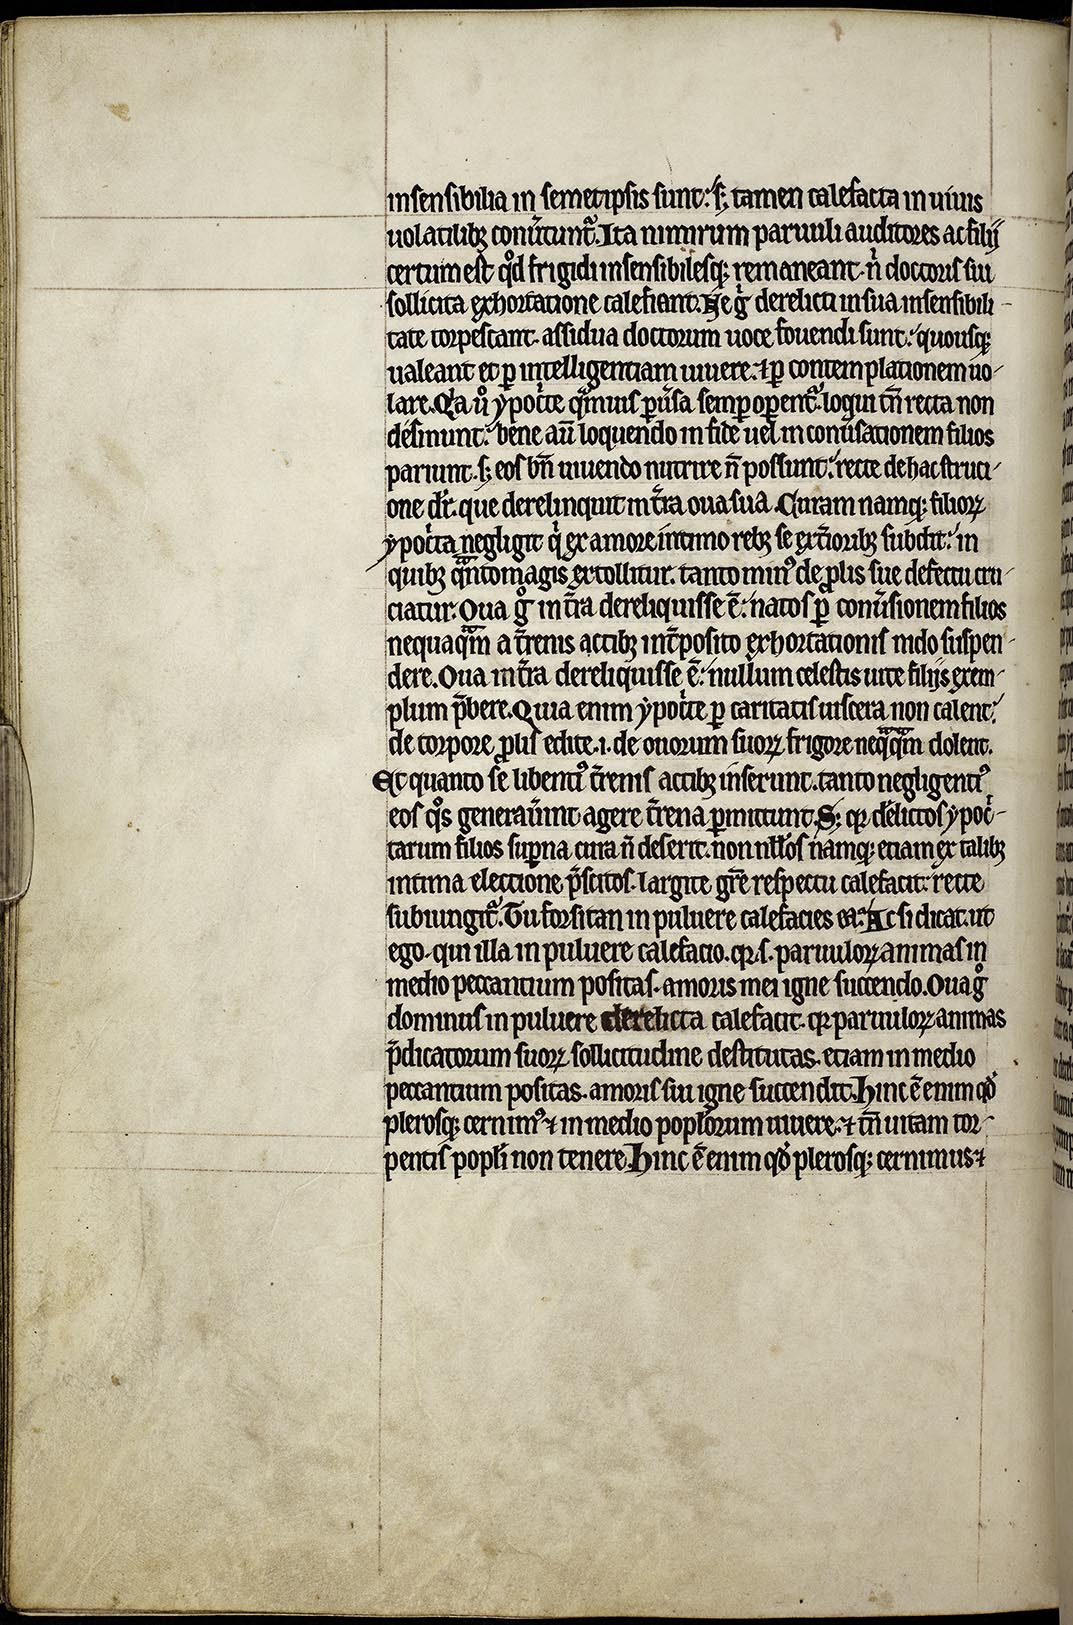 insensibilia in semetipsis sunt: sꝫ tamen calefacta in uiuis
uolatilibꝫ conũtunt᷑. Ita nimirum paruuli auditores ac filij
certum est qđ frigidi insensibilesqꝫ remaneant. nͥ doctoris sui
sollicita exhortatione calefiant. Ne gͦ derelicti in sua insensibili-
tate torpescant. assidua doctorum uoce fouendi sunt: quousqꝫ
ualeant et ꝑ intelligentiam uiuere: ⁊ ꝑ contemplationem uo-
lare. Qͥa ũo ypoc̃te qᷓmuis ꝑũsa semꝑ oꝑent᷑: loqui tñ recta non
desinunt: bene aũ loquendo in fide uel in conũsationem filios
pariunt. sꝫ eos bñ uiuendo nutrire ñ possunt: recte de hac struci-
one dr̃. que derelinquit in t̃ra oua sua. Curam namqꝫ filioꝝ
ypoc̃ta negligit qͥ ex amore intimo rebꝫ se ext̃ioribꝫ subdit: in
quibꝫ qᷓnto magis extollitur. tanto minꝰ de ꝓlis sue defectu cru-
ciatur. Oua gͦ in t̃ra dereliquisse ẽ: natos ꝑ conũsionem filios
nequaqᷓm a t̃renis actibꝫ int̃posito exhortationis nido suspen-
dere. Oua in t̃ra dereliquisse ẽ: nullum celestis uite filijs exem-
plum p̃bere. Quia enim ypoc̃te ꝑ caritatis uiscera non calent:
de torpore ꝓlis edite .i. de ouorum suoꝝ frigore neqᷓqᷓm dolent.
Et quanto se libentiꝰ t̃renis actibꝫ inserunt. tanto negligentiꝰ
eos qͦs generaũint agere t̃rena ꝑmittunt. Sꝫ qꝛ d̃elictos ypoc̃-
tarum filios suꝑna cura ñ deserit. non nłłos namqꝫ etiam ex talibꝫ
intima electione p̃scitos. largite gr̃e respectu calefacit: recte
subiungit᷑. Tu forsitan in puluere calefacies ea: Ac si dicat. ut
ego. qui illa in puluere calefacio. qꝛ .s. paruuloꝝ animas in
medio peccantium positas. amoris mei igne succendo. Oua gͦ
dominus in puluere derelicta calefacit. qꝛ paruuloꝝ animas
p̃dicatorum suoꝝ sollicitudine destitutas. etiam in medio
peccantium positas. amoris sui igne succendit. Hinc ẽ enim qđ
plerosqꝫ cernimꝰ ⁊ in medio popłorum uiuere: ⁊ tñ uitam tor-
pentis popłi non tenere. Hinc ẽ enim qđ plerosqꝫ cernimus ⁊